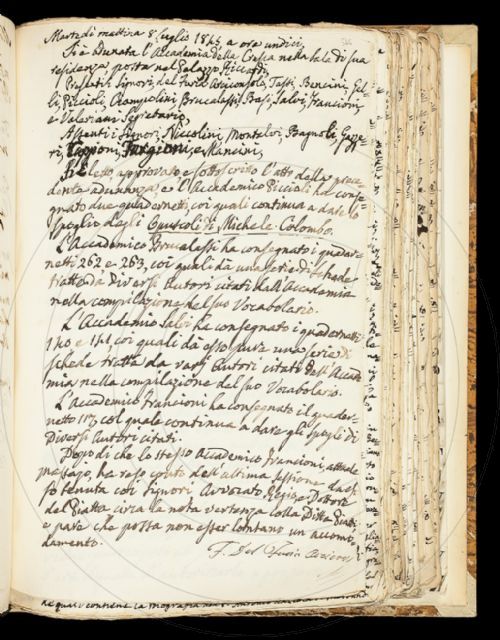 Martedì mattina 8 Luglio 1845 a ore undici.
Si è adunata l'Accademia della Crusca nella Sala di sua
residenza posta nel Palazzo Riccardi.
Presenti i Signori, del Furia Arciconsolo, Tassi, Bencini, Gel-
li, Piccioli, Ciampolini Brucalassi, Basi, Salvi, Francioni,
e Valeriani Segretario.
Assenti i Signori, Niccolini, Montalvi, Bagnoli, Gazze-
ri, Capponi, Targioni, e Mancini,
Fu letto, approvato e sottoscritto l'atto della prece-
dente adunanza; e l'Accademico Piccioli ha conse-
gnato due quadernetti, coi quali continua a dare lo
spoglio degli Opuscoli di Michele Colombo.
L'Accademico Brucalassi ha consegnato i quader-
netti 262 e 263, coi quali dà una serie di schede
tratte da diversi Autori citati dall'Accademia
nella compilazione del suo Vocabolario.
L'Accademico Salvi ha consegnato i quadernetti
140 e 141, coi quali dà esso pure una serie di
schede tratte da varj Autori citati dall'Accade-
mia nella compilazione del suo Vocabolario.
L'Accademico Francioni ha consegnato il quader-
netto 117, col quale continua a dare gli spogli di
diversi autori citati.
Dopo di che lo stesso Accademico Francioni, attuale
Massajo, ha reso conto dell'ultima sessione da es-
so tenuta coi Signori Avvocato e Dottore
del Giatta circa la nota vertenza colla Ditta
e pare che possa non esser lontano un accomo-
damento.
F. Del Furia